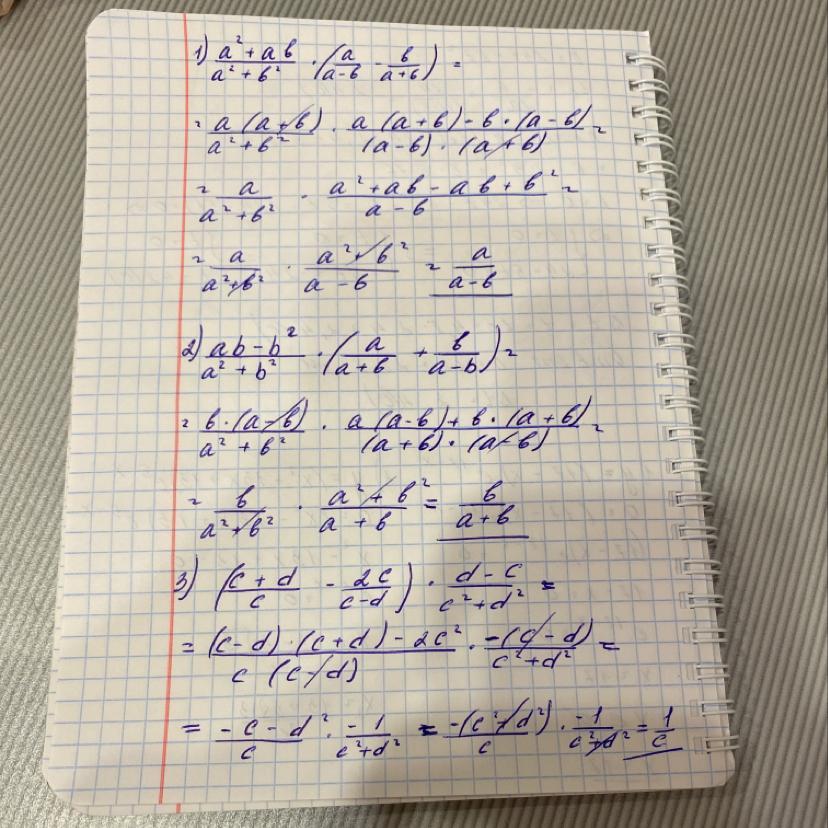 1) (a² + ab)/(a² + b²) · (a/(a-b) - b/(a+b)) =
= a(a+b)/(a² + b²) · (a(a+b) - b·(a-b))/((a-b)·(a+b)) =
= a/(a² + b²) · (a² + ab - ab + b²)/(a - b) =
= a/(a² + b²) · (a² + b²)/(a - b) = a/(a-b)
2) (ab - b²)/(a² + b²) · (a/(a+b) + b/(a-b)) =
= b·(a-b)/(a² + b²) · (a(a-b) + b·(a+b))/((a+b)·(a-b)) =
= b/(a² + b²) · (a² + b²)/(a + b) = b/(a+b)
3) ((c+d)/c - 2c/(c-d)) · (d-c)/(c² + d²) =
= ((c-d)·(c+d) - 2c²)/(c(c-d)) · -(c-d)/(c² + d²) =
= (-c - d²)/c · -1/(c² + d²) = -(c² + d²)/c · -1/(c² + d²) = 1/c